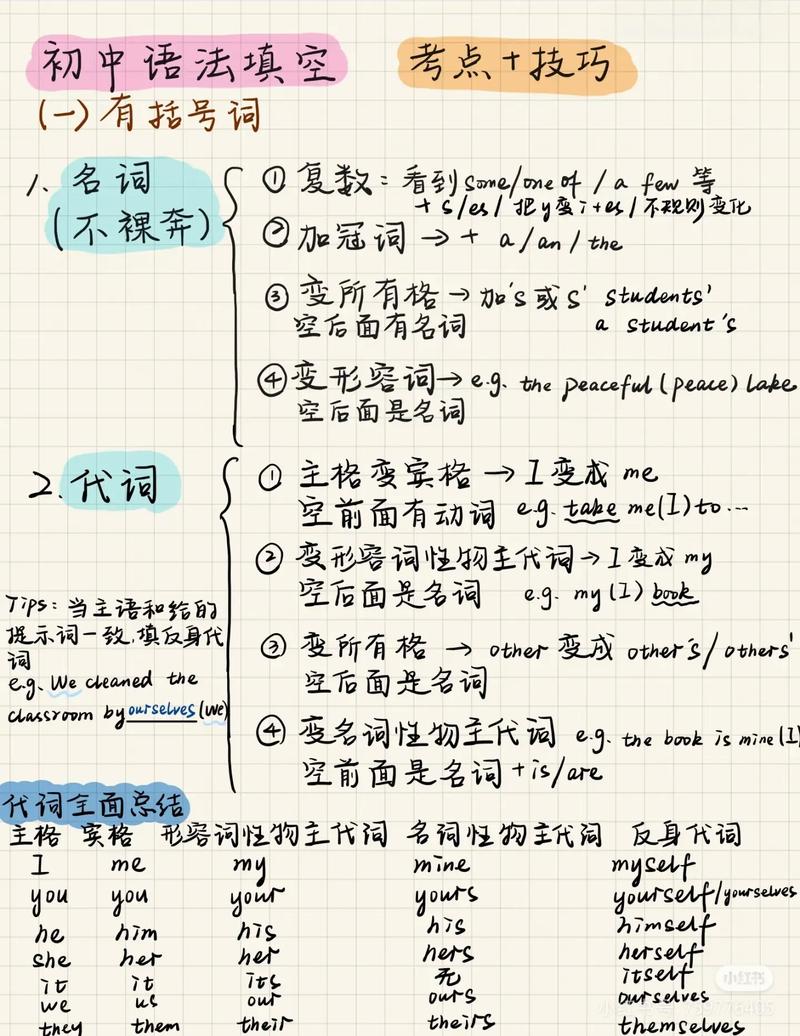 初中语法填空 考点+技巧
(一)有括号词
1. 名词
(不裸奔)
① 复数：看到some/one of / a few 等
+ s/es/ 把y变i+es/不规则变化
② 加冠词 → + a/an/the
③ 变所有格 → 加's或s' students'
空后面有名词 a student's
④ 变形容词→ e.g. the peaceful(peace) lake
空后面是名词
2. 代词
① 主格变宾格 → I 变成 me
空前面有动词 e.g. take me(I) to ...
② 变形容词性物主代词 → I 变成 my
空后面是名词 e.g. my (I) book
③ 变所有格 → other 变成 other's/others'
空后面是名词
④ 变名词性物主代词 e.g. the book is mine(I)
空前面是名词 + is/are
Tips: 当主语和给的
提示词一致,填反身代
词
e.g. We cleaned the
classroom by ourselves (we)
代词全面总结
主格 宾格 形容词性物主代词 名词性物主代词 反身代词
I me my mine myself
you you your yours yourself/yourselves
he him his his himself
she her her hers herself
it it its 无 itself
we us our ours ourselves
they them their theirs themselves
小红书